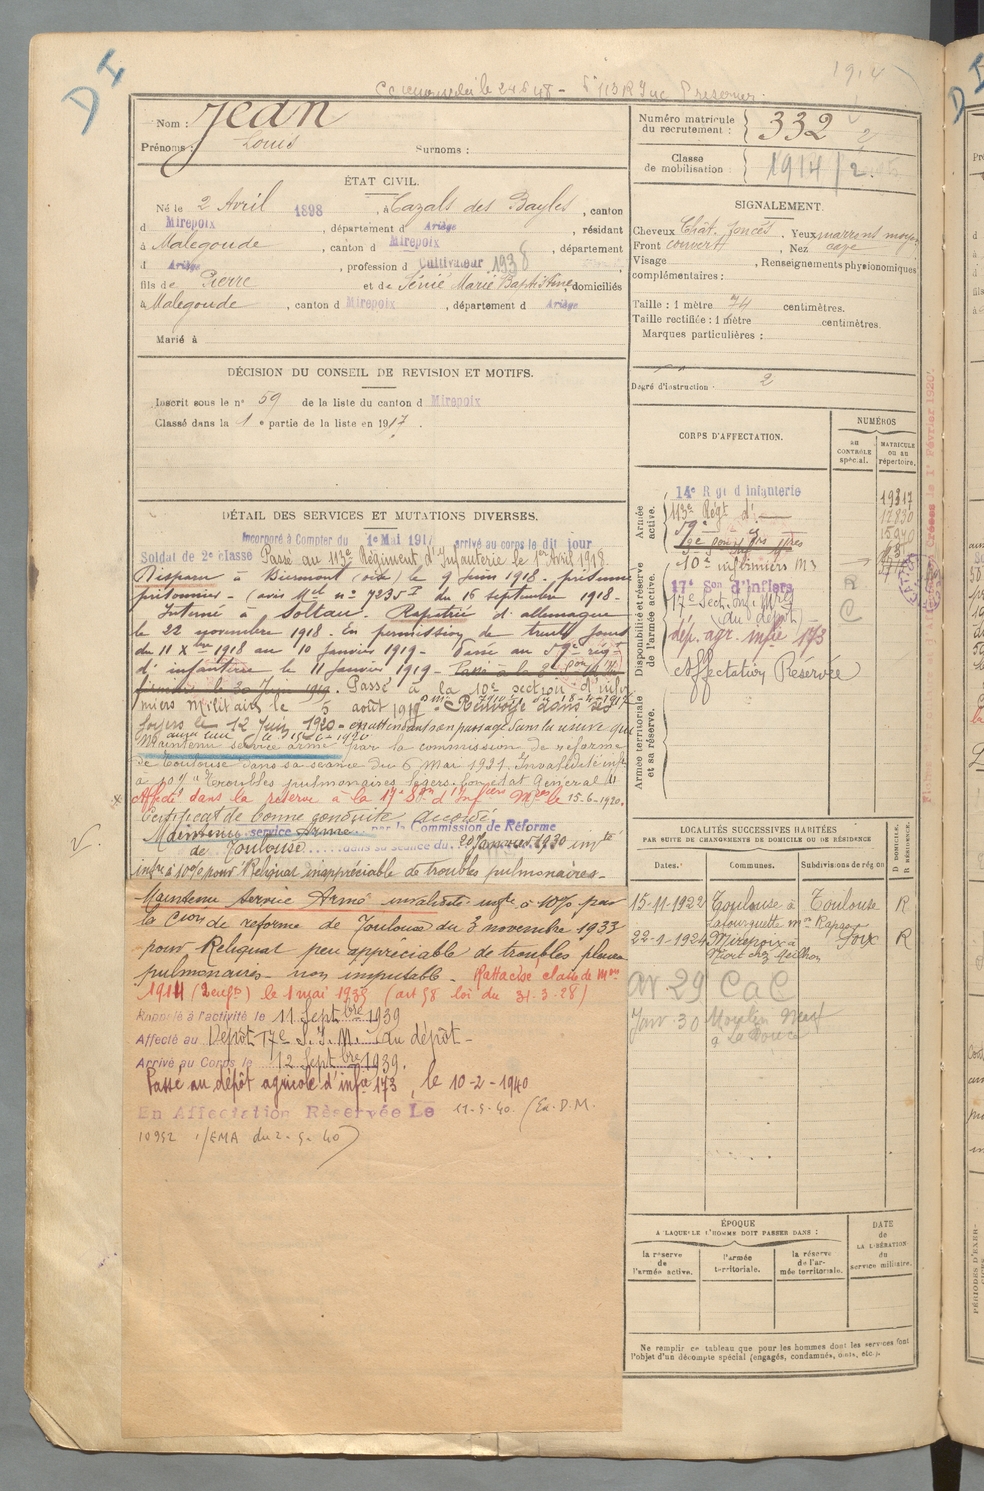 D I
1914
Nom : Jean
Prénoms : Louis Surnoms :
Numéro matricule du recrutement : 332
Classe de mobilisation : 1914/2
ÉTAT CIVIL.
Né le 2 Avril 1898, à Cazals des Bayles, canton
d Mirepoix, département d Ariège, résidant
à Malegoude, canton d Mirepoix, département
d Ariège, profession d Cultivateur 1938
fils de Pierre et de Sénié Marie Baptistine, domiciliés
à Malegoude, canton d Mirepoix, département d Ariège
Marié à
SIGNALEMENT.
Cheveux Chât. foncés. Yeux marrons moyen
Front couvert, Nez
Visage , Renseignements physionomiques
complémentaires :
Taille : 1 mètre 74 centimètres.
Taille rectifiée : 1 mètre centimètres.
Marques particulières :
Degré d'instruction : 2
DÉCISION DU CONSEIL DE REVISION ET MOTIFS.
Inscrit sous le n° 59 de la liste du canton d Mirepoix
Classé dans la 1e partie de la liste en 1917.
CORPS D'AFFECTATION.
NUMÉROS
au CONTRÔLE spécial.
MATRICULE OU AU répertoire.
Armée active.
14e Rgt d'Infanterie 19317
113e Régt d'— 12830
59e
10e infirmiers Ms
Disponibilité et réserve de l'armée active.
17e Son d'Infiers
17e Sect. Inf. Mres (du dépôt)
dép. agr. infie 173
Affectation Réservée
R
C
Armée territoriale et sa réserve.
DÉTAIL DES SERVICES ET MUTATIONS DIVERSES.
Incorporé à Compter du 1e Mai 1917 arrivé au corps le dit jour
Soldat de 2e classe Passé au 113e Régiment d'Infanterie le 1er Avril 1918.
Disparu à (oise) le 9 Juin 1918 - présumé
prisonnier - (avis Mel n° 7235 I du 16 septembre 1918 -
Interné à Soltau. Rapatrié d'allemagne
le 22 novembre 1918. En permission de trente jours
du 11 Xbre 1918 au 10 Janvier 1919 - Passé au 59e régt
d'infanterie le 11 Janvier 1919 - Passé à la
le 30 Juin 1919. Passé à la 10e section d'infir
miers militaires le 5 août 1919. Renvoyé dans ses
foyers le 12 Juin 1920 - en attendant son passage dans la réserve qui
aura lieu le 15-6-1920
Maintenu service armé par la commission de réforme
de Toulouse dans sa séance du 6 Mai 1921. Invalidité infre
à 10% "troubles pulmonaires légers bon état général"
Affecté dans la réserve à la 17e Son d'Infiers Mres le 15-6-1920.
Certificat de bonne conduite accordé
Maintenu service Armé par la Commission de Réforme
de Toulouse dans sa séance du 20 Janvier 1930 inté
infre à 10% pour "Reliquat inappréciable de troubles pulmonaires -
Maintenu Service Armé invalidité infre à 10% par
la Cion de réforme de Toulouse du 3 novembre 1933
pour Reliquat peu appréciable de troubles pleuro
pulmonaires - non imputable. Rattaché classe de Mon
1914 (2 enfts) le 1 mai 1939 (art 58 loi du 31-3-28)
Rappelé à l'activité le 11 Septbre 1939
Affecté au Dépôt 17e S.I.M. du dépôt -
Arrivé au Corps le 12 Septbre 1939.
Passé au dépôt agricole d'infie 173, le 10-2-1940
En Affectation Réservée Le 11-5-40. (Ex. D.M.
10952 1/EMA du 2-5-40)
LOCALITÉS SUCCESSIVES HABITÉES
PAR SUITE DE CHANGEMENTS DE DOMICILE OU DE RÉSIDENCE
Dates. Communes. Subdivisions de région
D DOMICILE. R RÉSIDENCE.
15-11-1922 Toulouse à Lafourguette Toulouse R
22-1-1924 Mirepoix à Foix R
av 29 CaC
Janv. 30 Moulin Neuf
ÉPOQUE
A LAQUELLE L'HOMME DOIT PASSER DANS :
la réserve de l'armée active.
l'armée territoriale.
la réserve de l'armée territoriale.
DATE de LA LIBÉRATION du service militaire.
Ne remplir ce tableau que pour les hommes dont les services font
l'objet d'un décompte spécial (engagés, condamnés, omis, etc.).